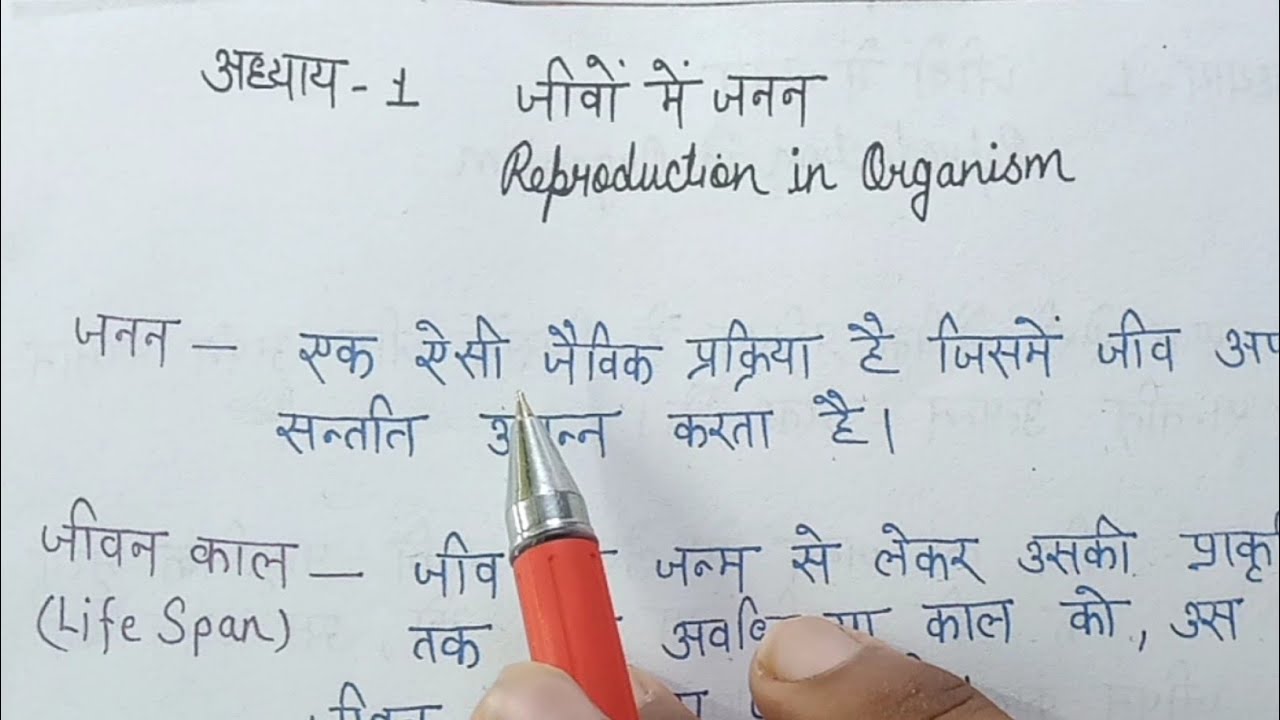 अध्याय - 1 जीवों में जनन
Reproduction in Organism
जनन — एक ऐसी जैविक प्रक्रिया है जिसमें जीव
सन्तति करता है।
जीवन काल — जीव जन्म से लेकर उसकी
(Life Span) तक काल को, उस
जीवन